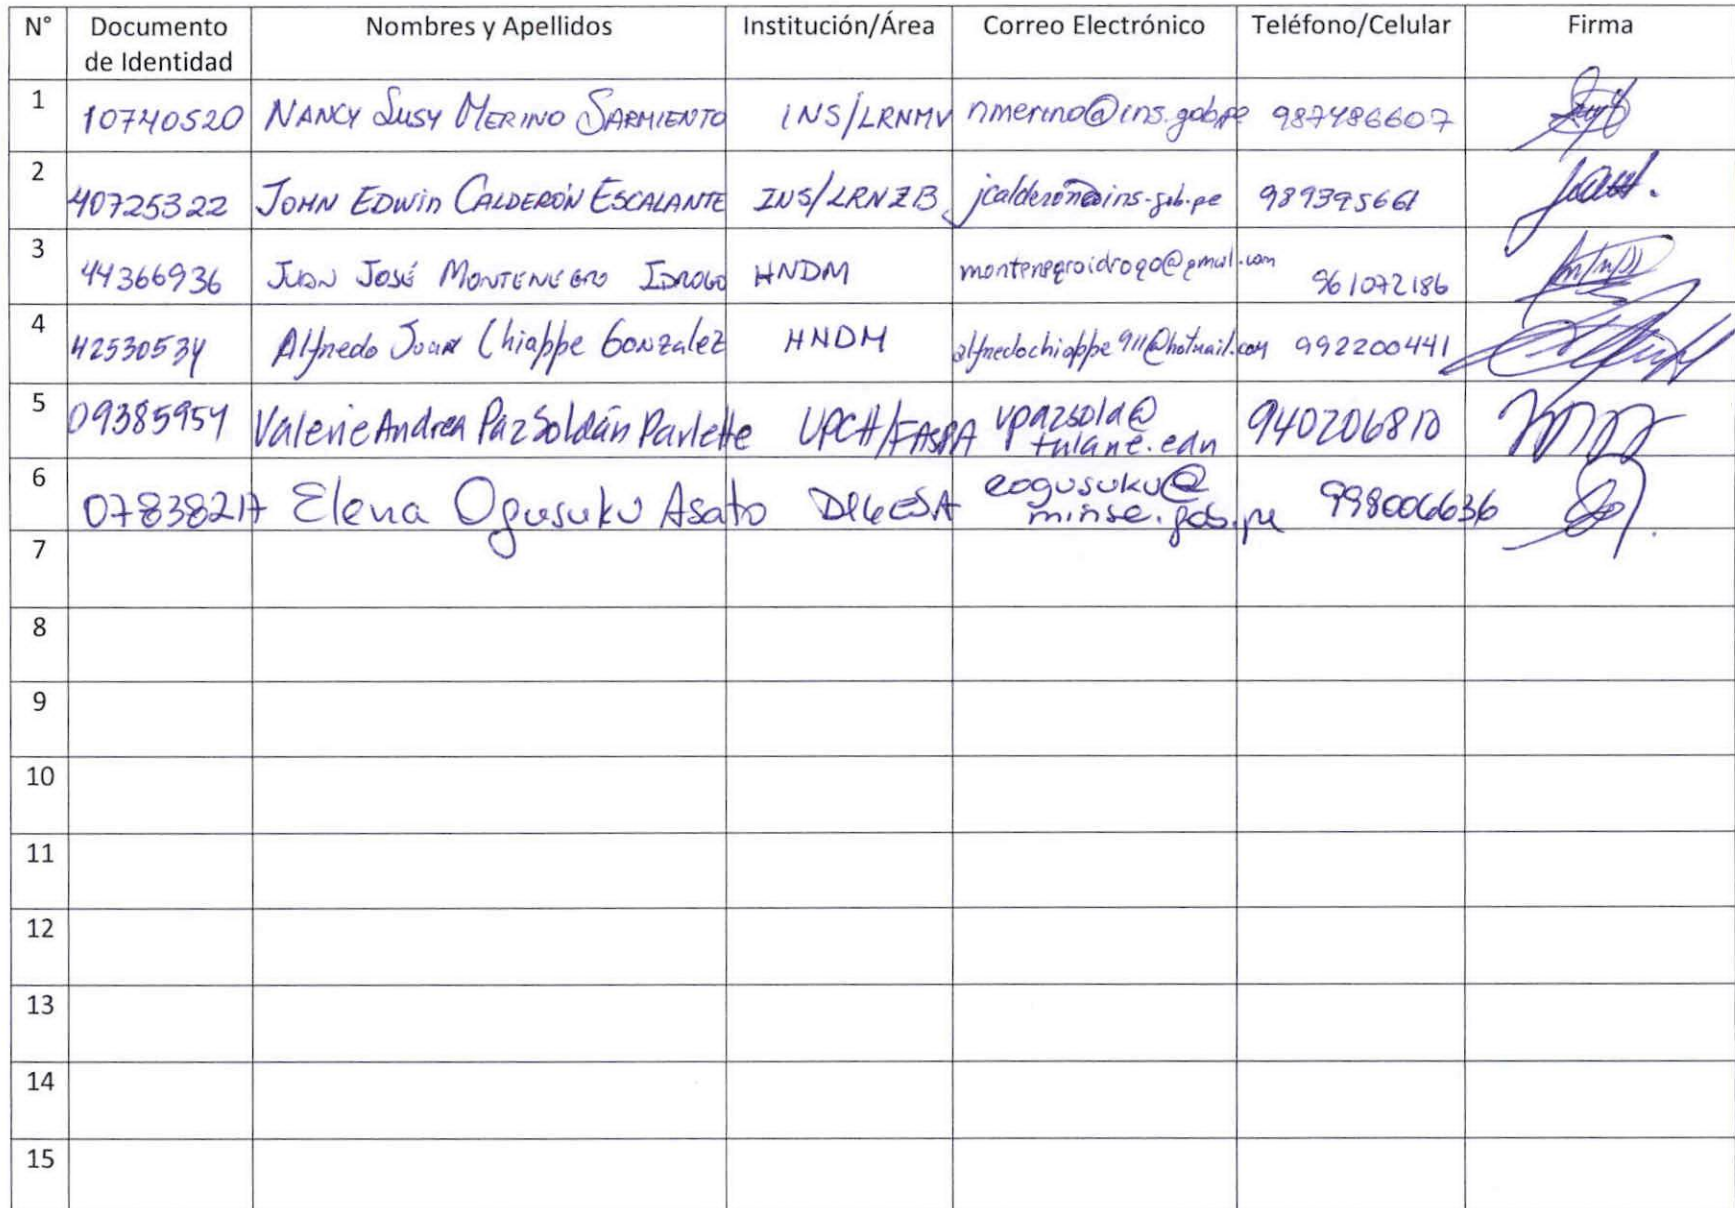 N° Documento de Identidad Nombres y Apellidos Institución/Área Correo Electrónico Teléfono/Celular Firma
1 10740520 NANCY SUSY MERINO SARMIENTO INS/LRNMV nmerino@ins.gob.pe 987486607
2 40725322 JOHN EDWIN CALDERÓN ESCALANTE INS/LRNZB jcalderon@ins.gob.pe 989395661
3 44366936 JUAN JOSÉ MONTENEGRO IDROGO HNDM montenegroidrogo@gmail.com 961072186
4 42530534 Alfredo Juan Chiappe Gonzalez HNDM alfredochiappe911@hotmail.com 992200441
5 09385954 Valerie Andrea Paz Soldán Parlette UPCH/FASPA vpazsold@
tulane.edu 940206810
6 07838217 Elena Ogusuku Asato DIGESA eogusuku@
minsa.gob.pe 998006636
7
8
9
10
11
12
13
14
15